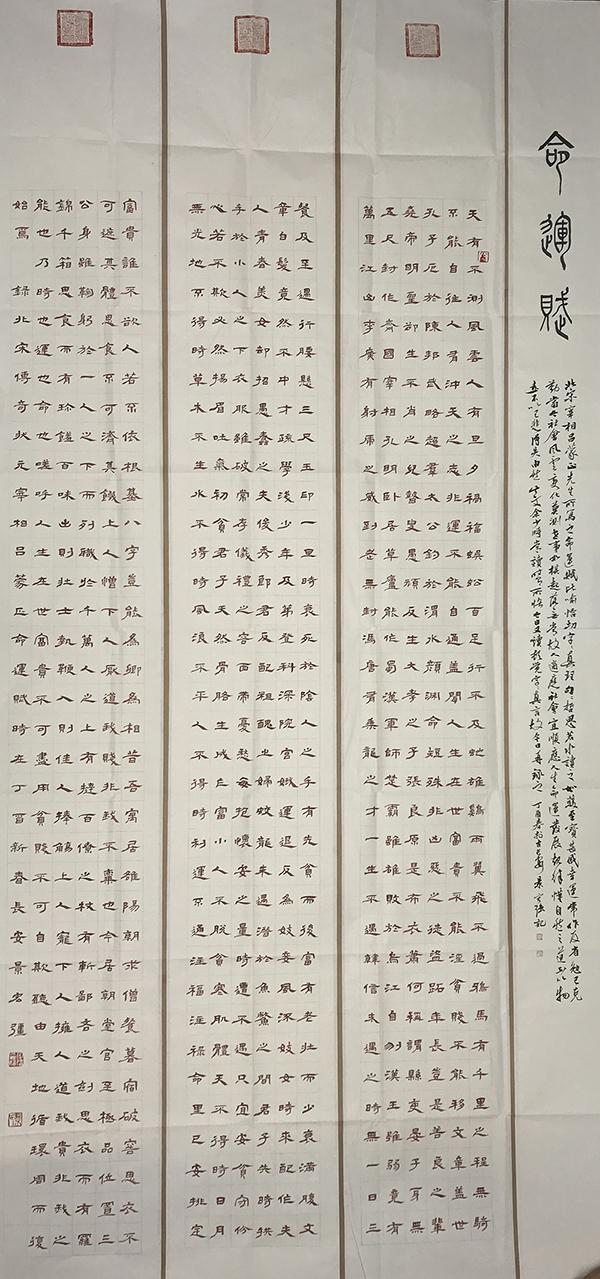 命運賦
北宋宰相呂蒙正先生所寫之命運賦
天有不測風雲人有旦夕禍福蜈蚣百足行不及蛇雄雞兩翼飛不過鴉馬有千里之程無騎
不能自往人有沖天之志非運不能自通蓋聞人生在世富貴不能淫貧賤不能移文章蓋世
孔子厄於陳邦武略超羣太公釣於渭水顏淵命短殊非凶惡之徒盜跖年長豈是善良之輩
堯帝明聖卻生不肖之兒瞽叟愚頑反生大孝之子張良原是布衣蕭何稱謂縣吏晏子身無
五尺封作齊國宰相孔明卧居草廬能作蜀漢軍師楚霸雖雄敗於烏江自刎漢王雖弱竟有
萬里江山李廣有射虎之威到老無封馮唐有乘龍之才一生不遇韓信未遇之時無一日三
餐及至遇行腰懸三尺玉印一旦時衰死於陰人之手有先貧而後富有老壯而少衰滿腹文
章白髮竟然不中才疏學淺少年及第登科深院宮娥運退反為妓妾風流妓女時來配作夫
人青春美女卻招愚蠢之夫俊秀郎君反配粗醜之婦蛟龍未遇潛於魚鱉之間君子失時拱
手於小人之下衣服雖破常存儀禮之容面帶憂愁每抱懷安之量時遭不遇只宜安貧守份
心若不欺必然揚眉吐氣初貧君子天然骨骼生成乍富小人不脫貧寒肌體天不得時日月
無光地不得時草木不生水不得時風浪不平人不得時利運不通注福注祿命里已安排定
富貴誰不欲人若不依根基八字豈能為卿為相昔吾寓居雒陽朝求僧餐暮宿破窖思衣不
可遮其體思食不可濟其饑上人憎下人厭道我賤非我不棄也今居朝堂官至極品位置三
公身雖鞠躬於一人之下而列職於千萬人之上有撻百僚之杖有斬鄙吝之劍思衣而有羅
錦千箱思食而有珍饈百味出則壯士執鞭入則佳人捧觴上人寵下人擁人道我貴非我之
能也乃時也運也命也嗟呼人生在世富貴不可盡用貧賤不可自欺聽由天地循環周而復
始焉 錄北宋傳奇狀元宰相呂蒙正命運賦時在丁酉新春長安景宏疆